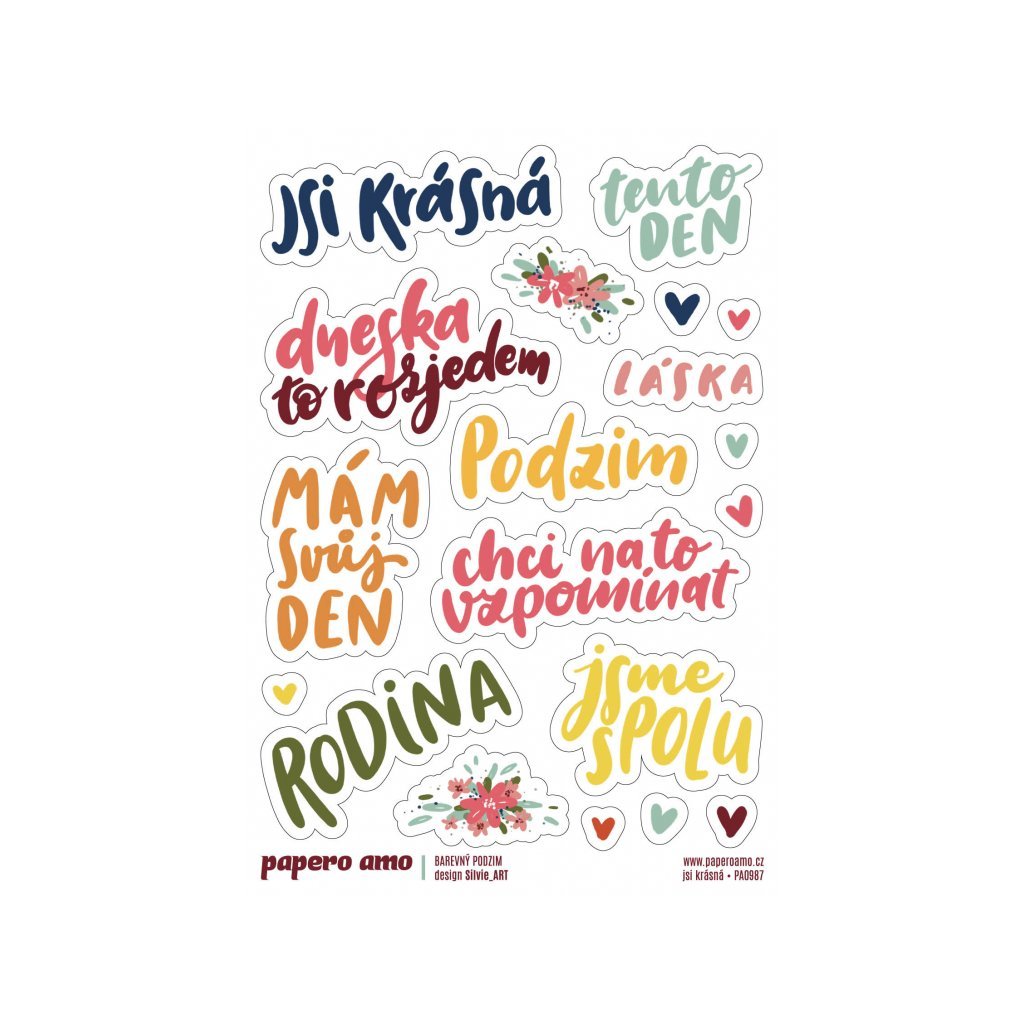 jsi krásná
tento
DEN
dneska
to rozjedem
LÁSKA
Podzim
MÁM
svůj
DEN
chci na to
vzpomínat
RODINA
jsme
SPOLU
papero amo
BAREVNÝ PODZIM
design Silvie_ART
www.paperoamo.cz
jsi krásná • PA0987